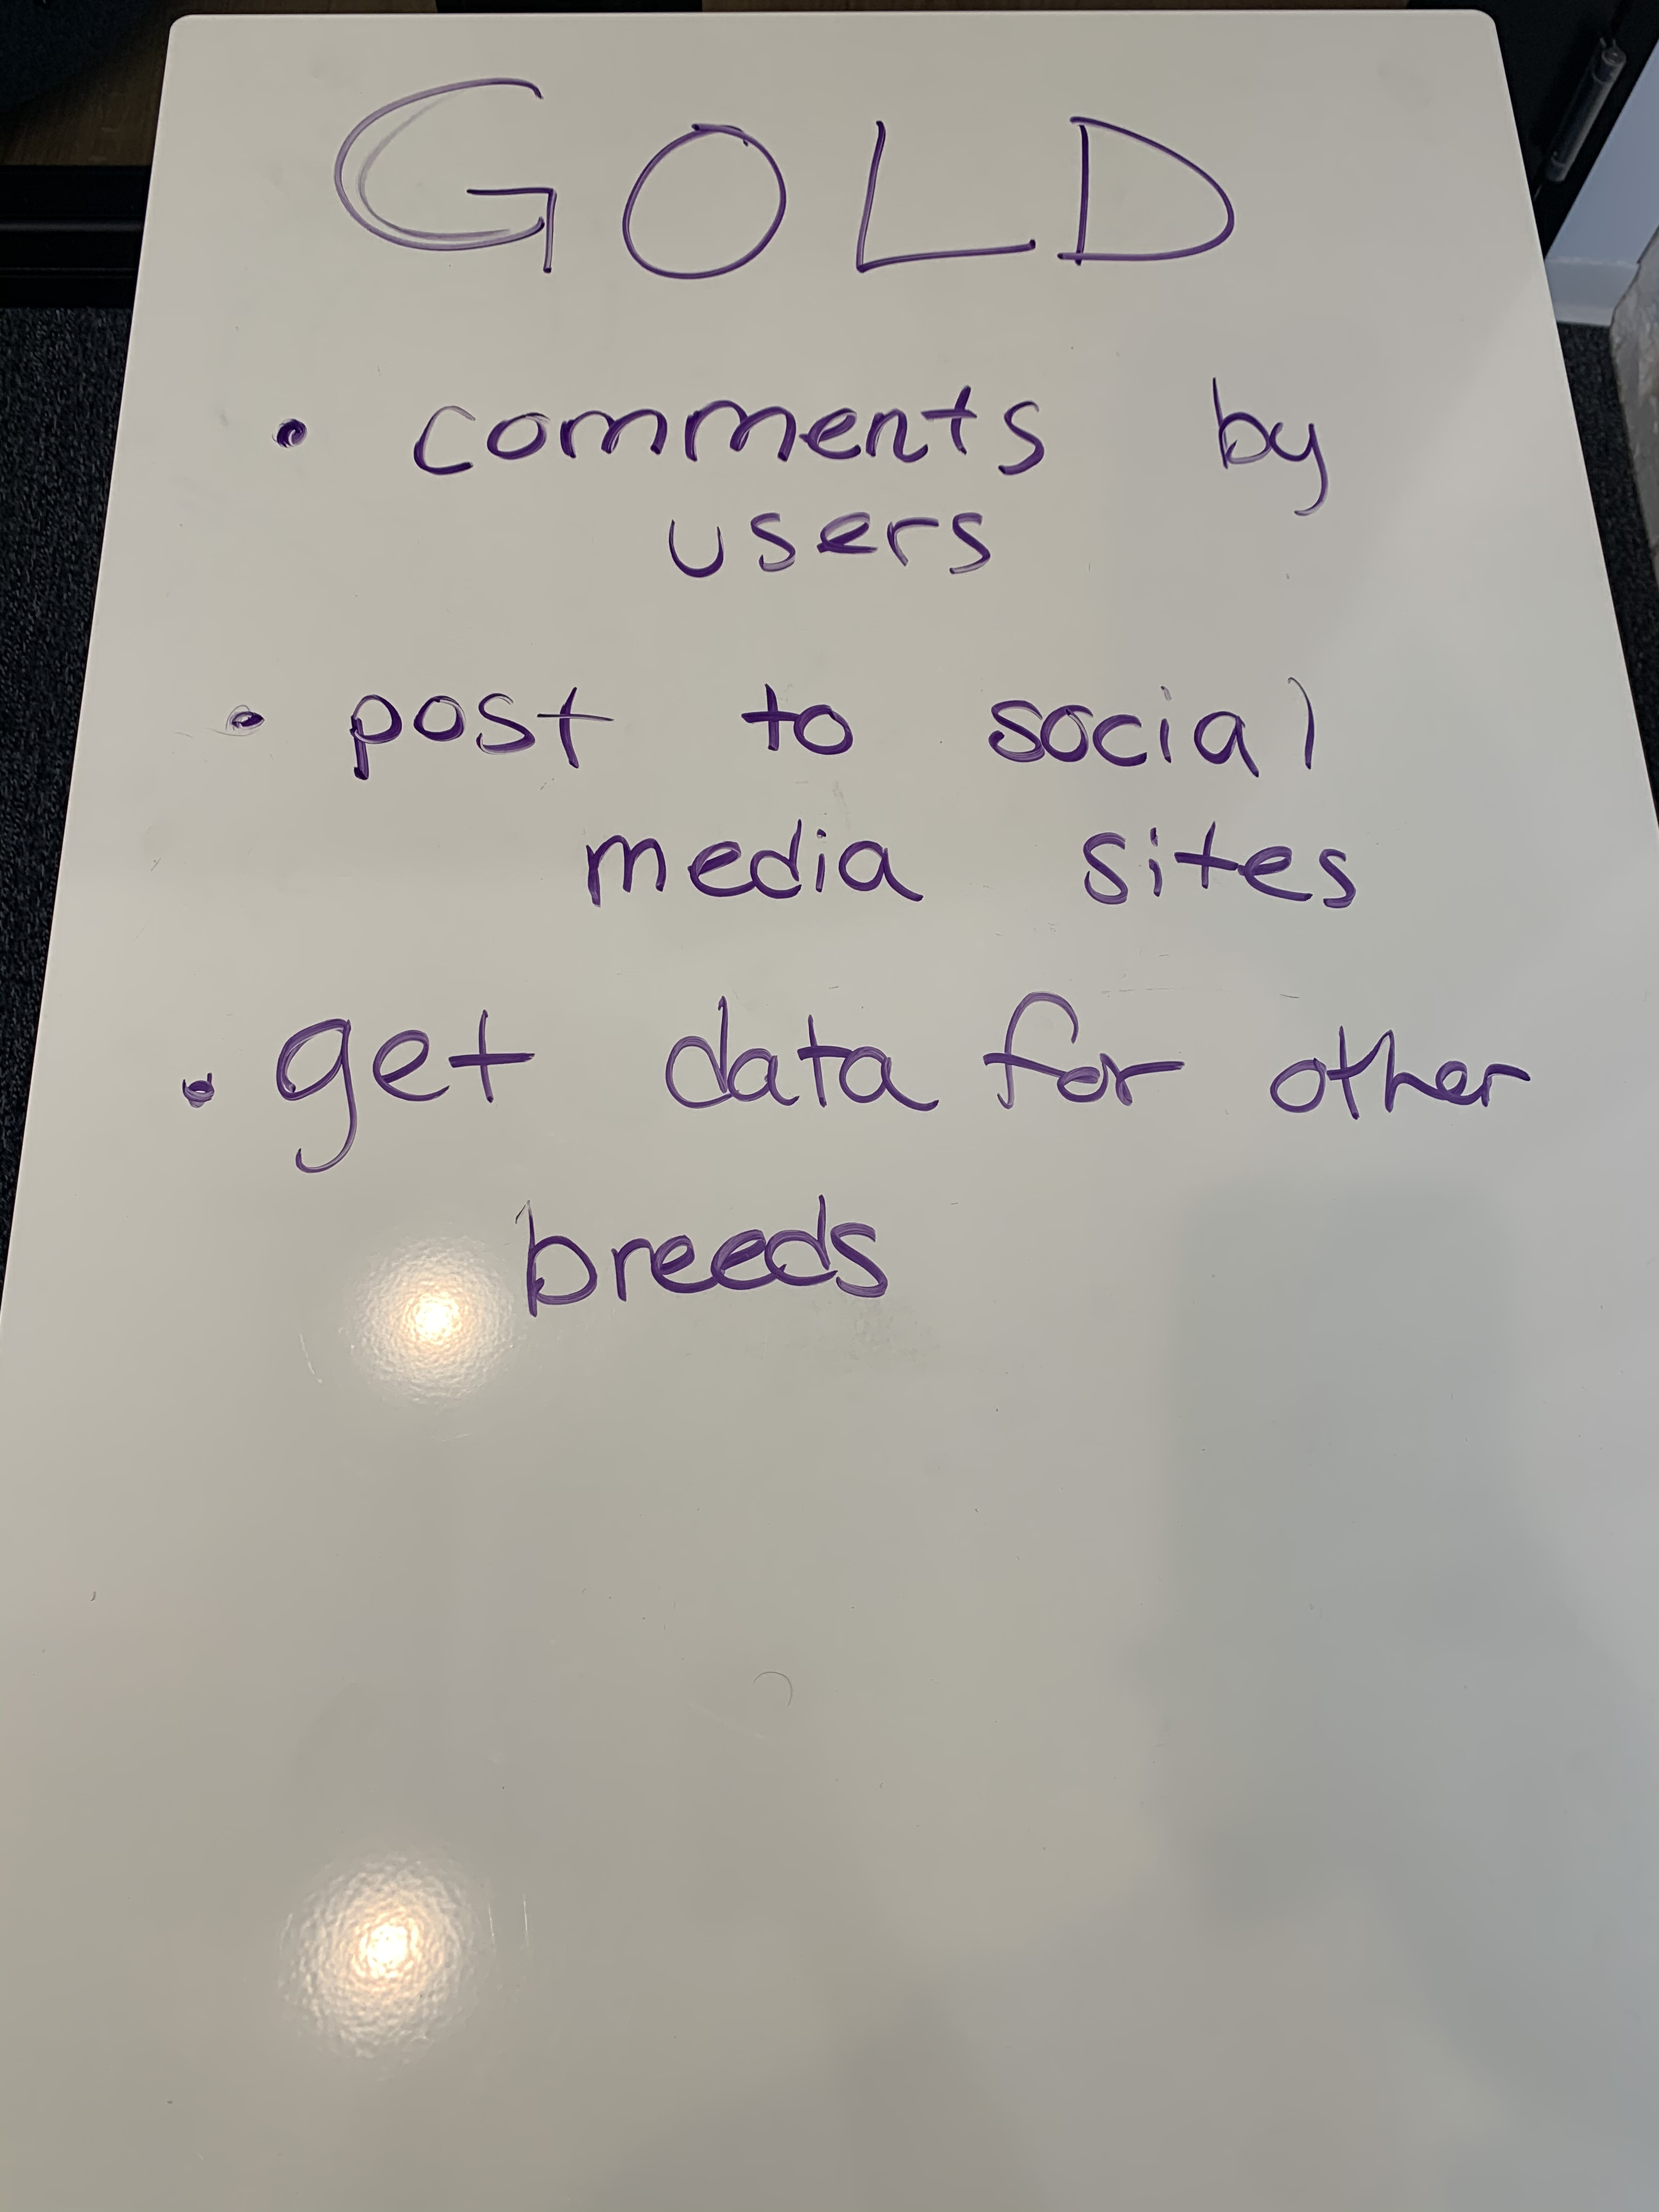 GOLD
• comments by
users
• post to social
media sites
• get data for other
breeds